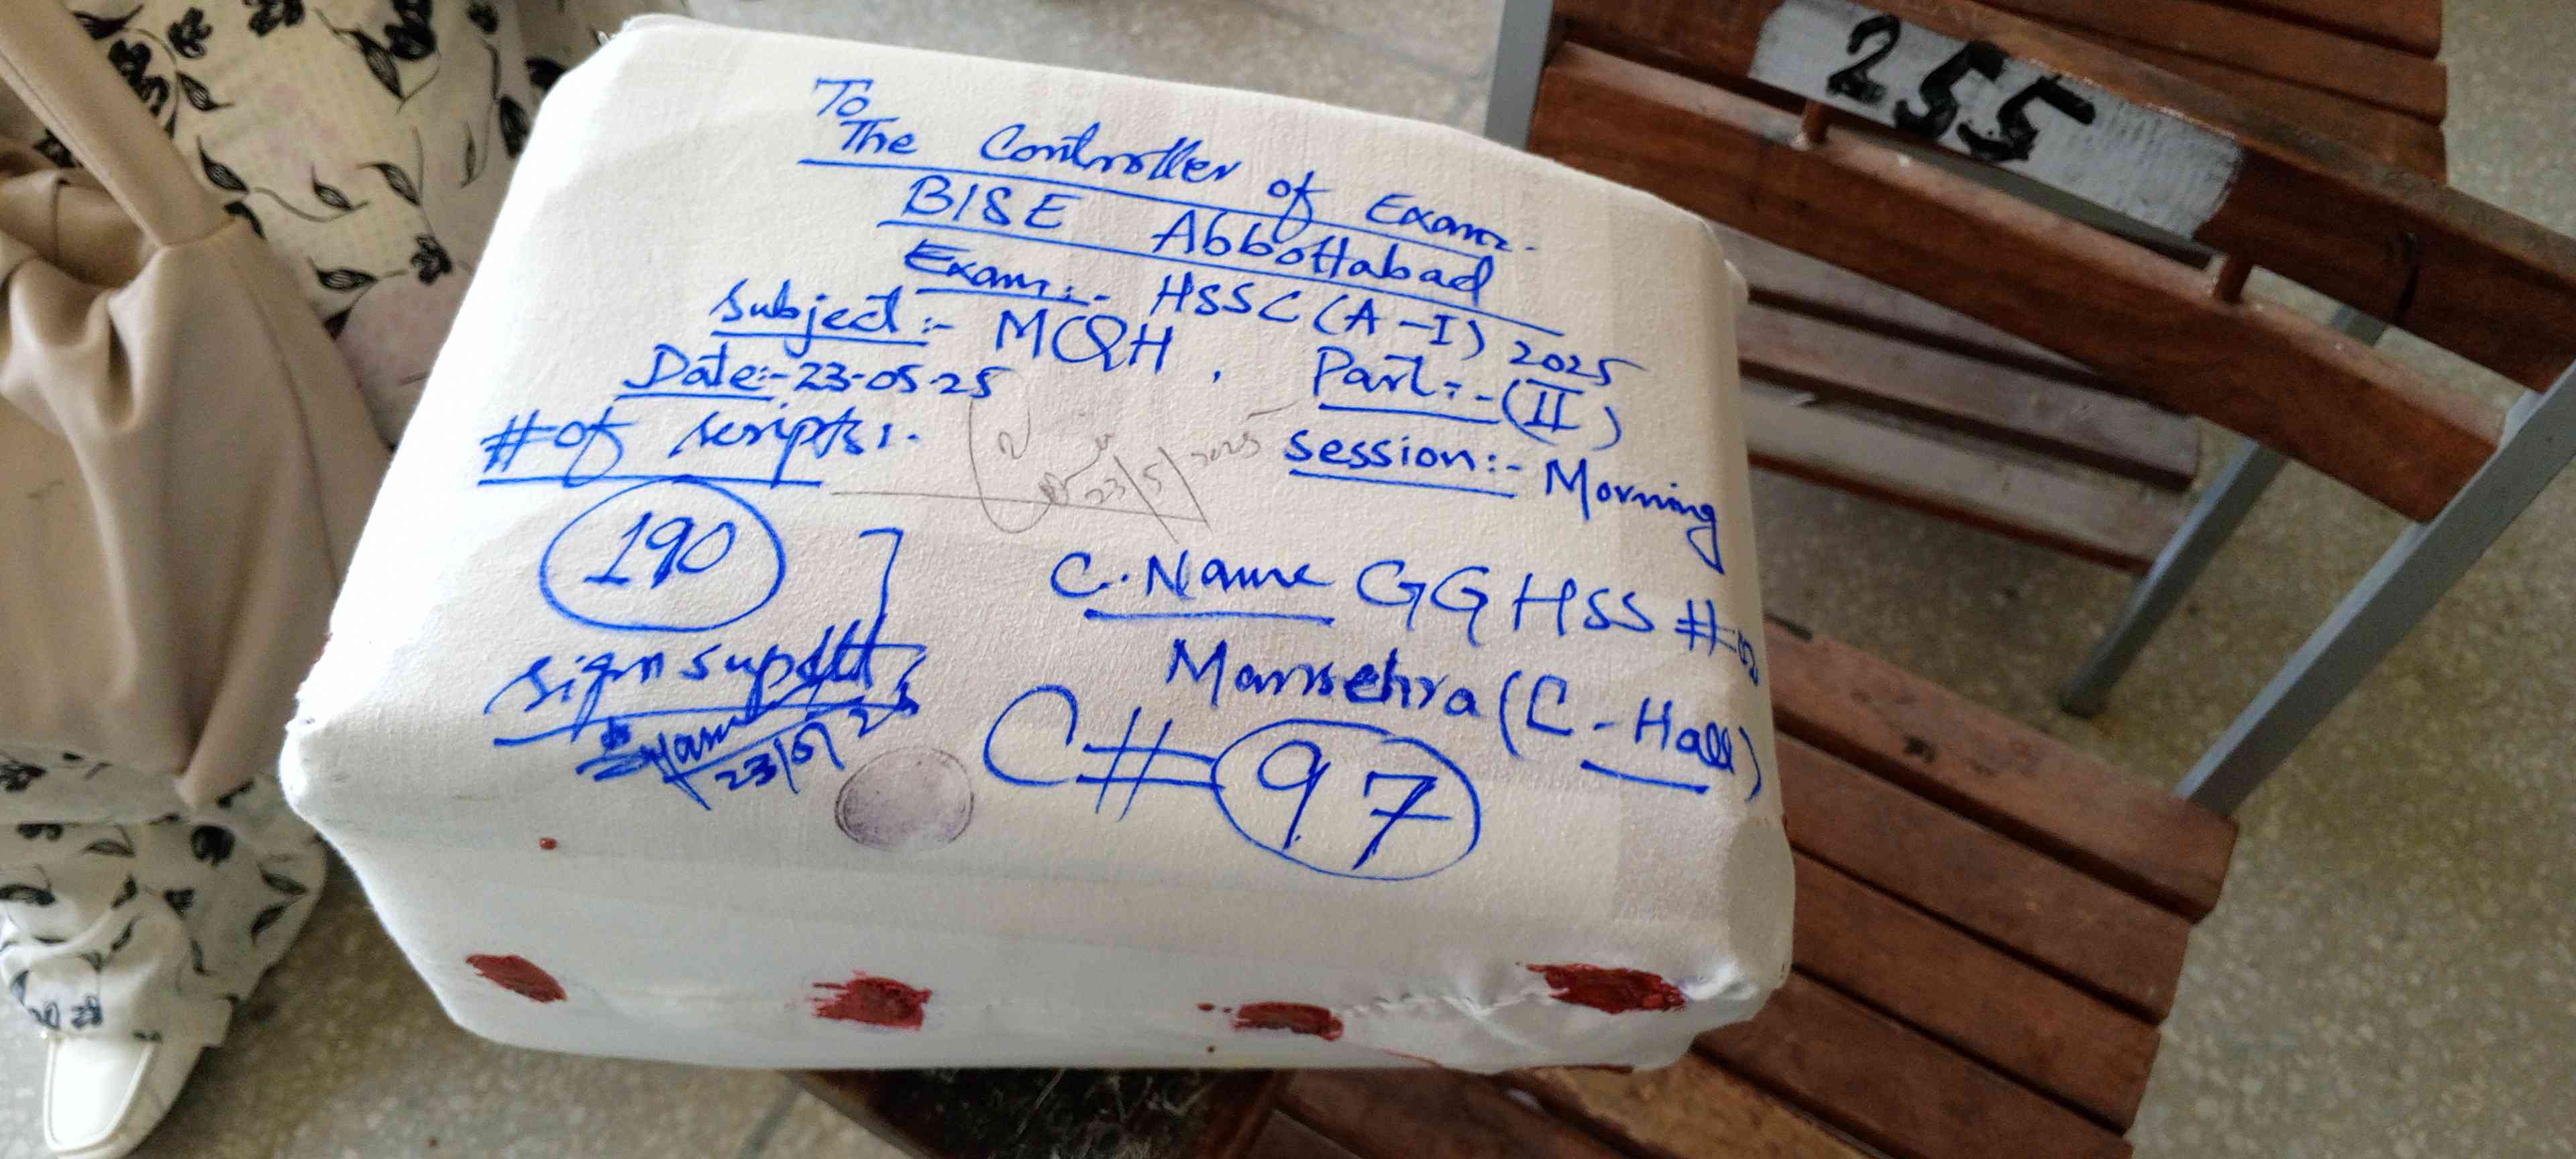 To
The Controller of Exam.
BISE Abbottabad
Exam:- HSSC (A-I) 2025
Subject:- MQH, Part:-(II)
Date:-23-05-25
Session:- Morning
# of scripts:-
23/5/2025
190
C.Name GGHSS #02
Mansehra (C-Hall)
Sign supdtt
23/5/25
C# 97
255